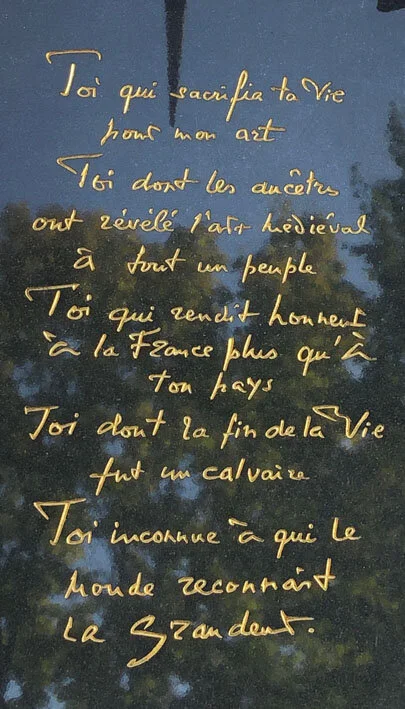 Toi qui sacrifia ta Vie
pour mon art
Toi dont les ancêtres
ont révélé l'art médiéval
à tout un peuple
Toi qui rendit honneur
à la France plus qu'à
ton pays
Toi dont la fin de la Vie
fut un calvaire
Toi inconnue à qui le
monde reconnaît
la Grandeur.